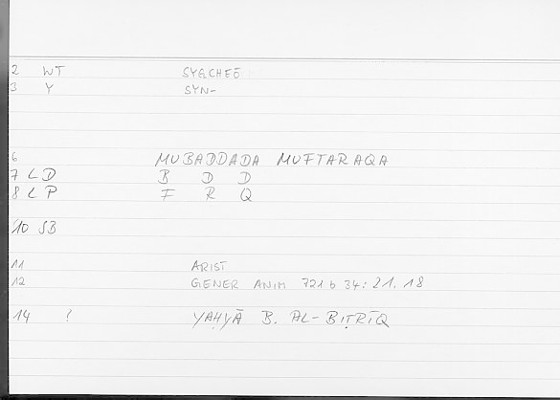 2 WT SYGCHEO
3 Y SYN-
6 MUBADDADA MUFTARAQA
7 LD B D D
8 LP F R Q
10 SB
11 ARIST
12 GENER ANIM 721 b 34: 21. 18
14 ! YAḤYĀ B. AL-BIṬRĪQ